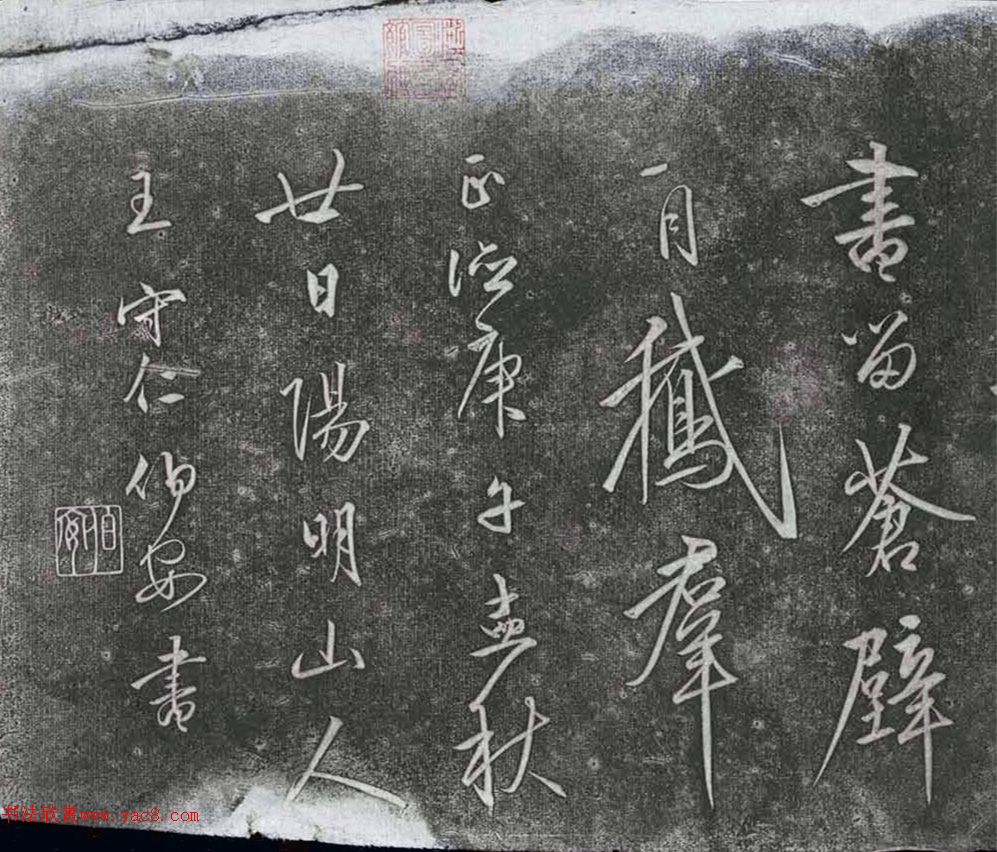 書留蒼壁
一月鵝羣
正德庚午孟秋
廿日陽明山人
王守仁伯安書
伯安
书法欣赏www.yac8.com